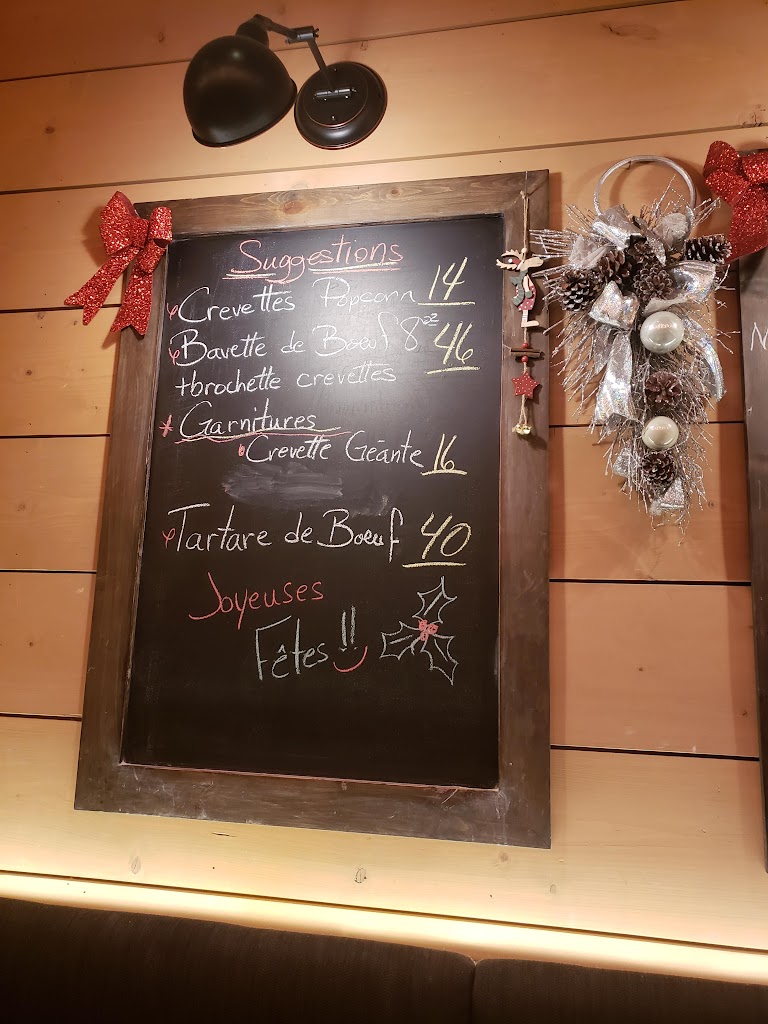 Suggestions
Crevettes Popcorn 14
Bavette de Boeuf 8oz 46
+brochette crevettes
* Garnitures
Crevette Géante 16
Tartare de Boeuf 40
Joyeuses
Fêtes!!
N